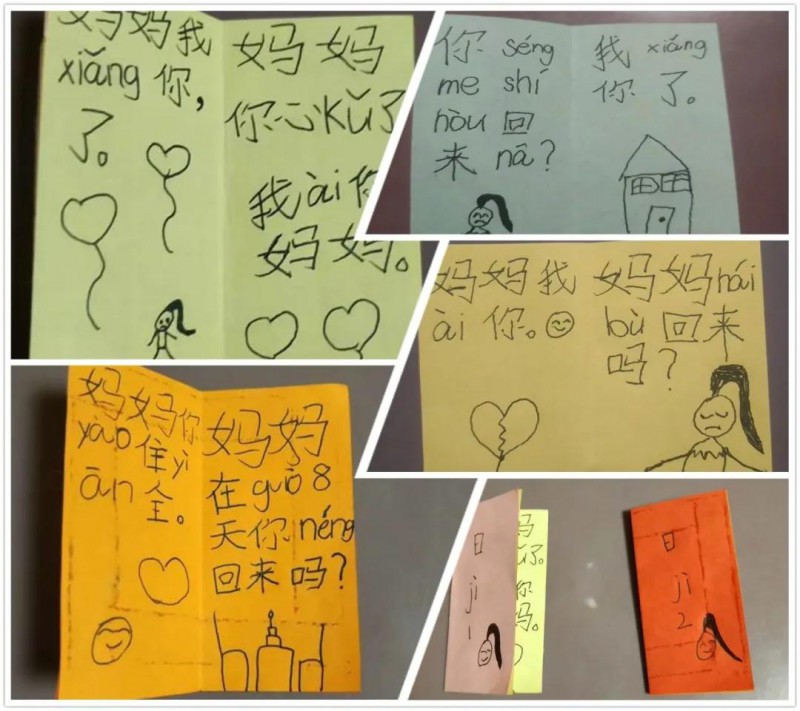 妈妈我
xiǎng 你,
了。
妈妈
你心kǔ了
我ài你
妈妈。
你 séng
me shí
hòu 回
来 nā?
我 xiǎng
你 了。
妈妈我
ài 你。
妈妈hái
bù 回来
吗?
妈妈你
yao 住yì
ān 全。
妈妈
在guò 8
天你 néng
回来吗?
日
jì
1
妈
了。
你
妈。
日
jì
2